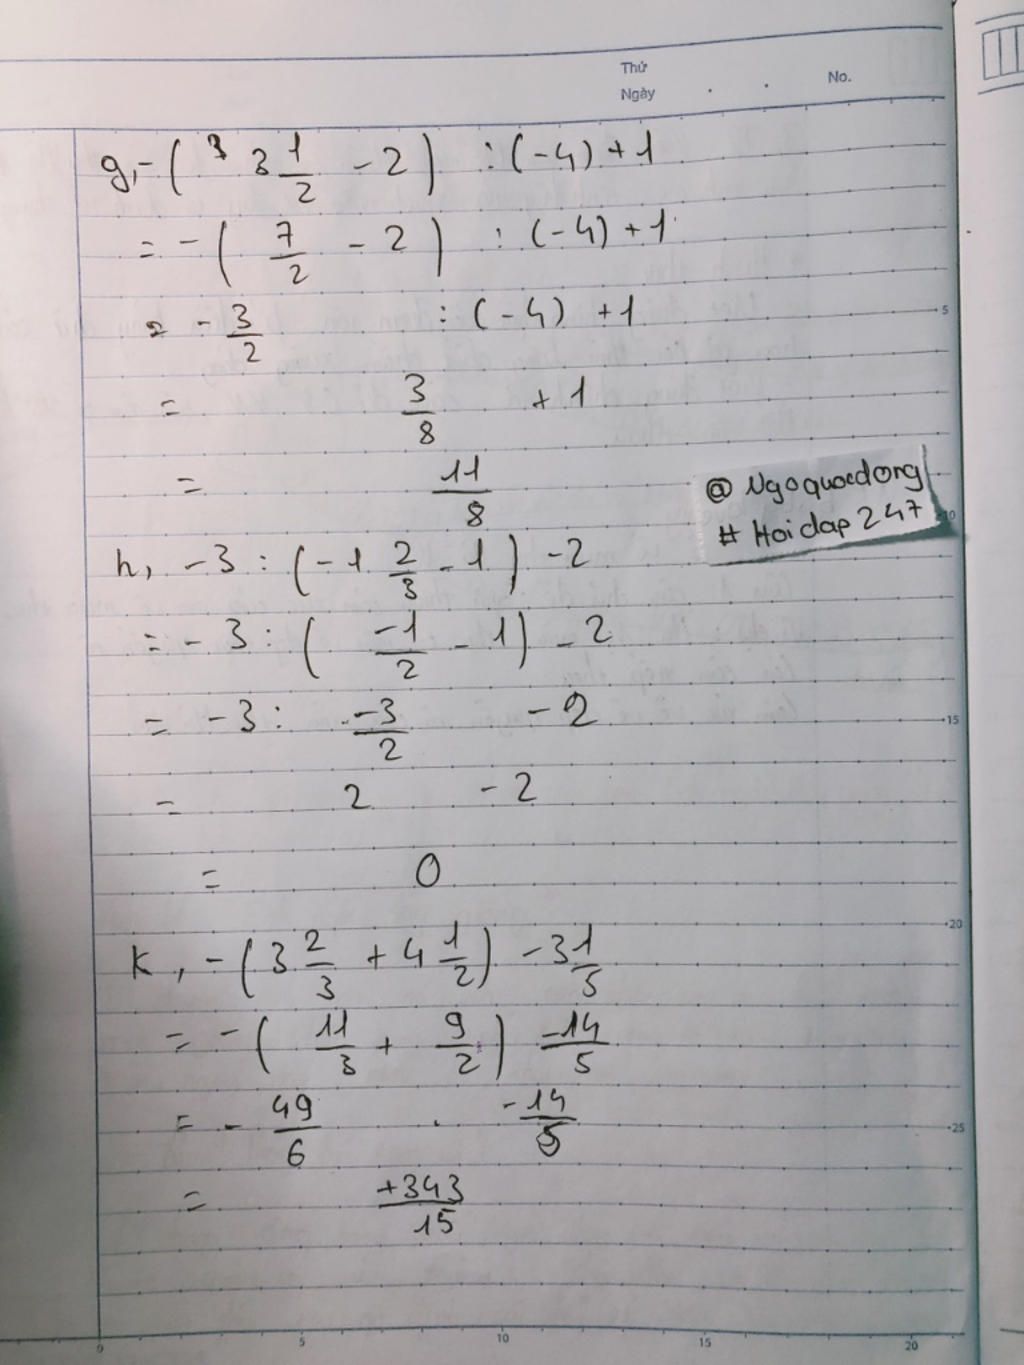 Thứ
Ngày . . No.
g, -(3 3 1/2 - 2) : (-4) + 1
= -(7/2 - 2) : (-4) + 1
= -3/2 : (-4) + 1
= 3/8 + 1
= 11/8
@ Ngoquocdong
# Hoidap247
h, -3 : (-1 2/3 - 1) - 2
= -3 : (-1/2 - 1) - 2
= -3 : -3/2 - 2
= 2 - 2
= 0
K, -(3 2/3 + 4 1/2) - 3 1/5
= -(11/3 + 9/2) -14/5
= -49/6 . -14/5
= +343/15
5
10
15
20
25
0 5 10 15 20